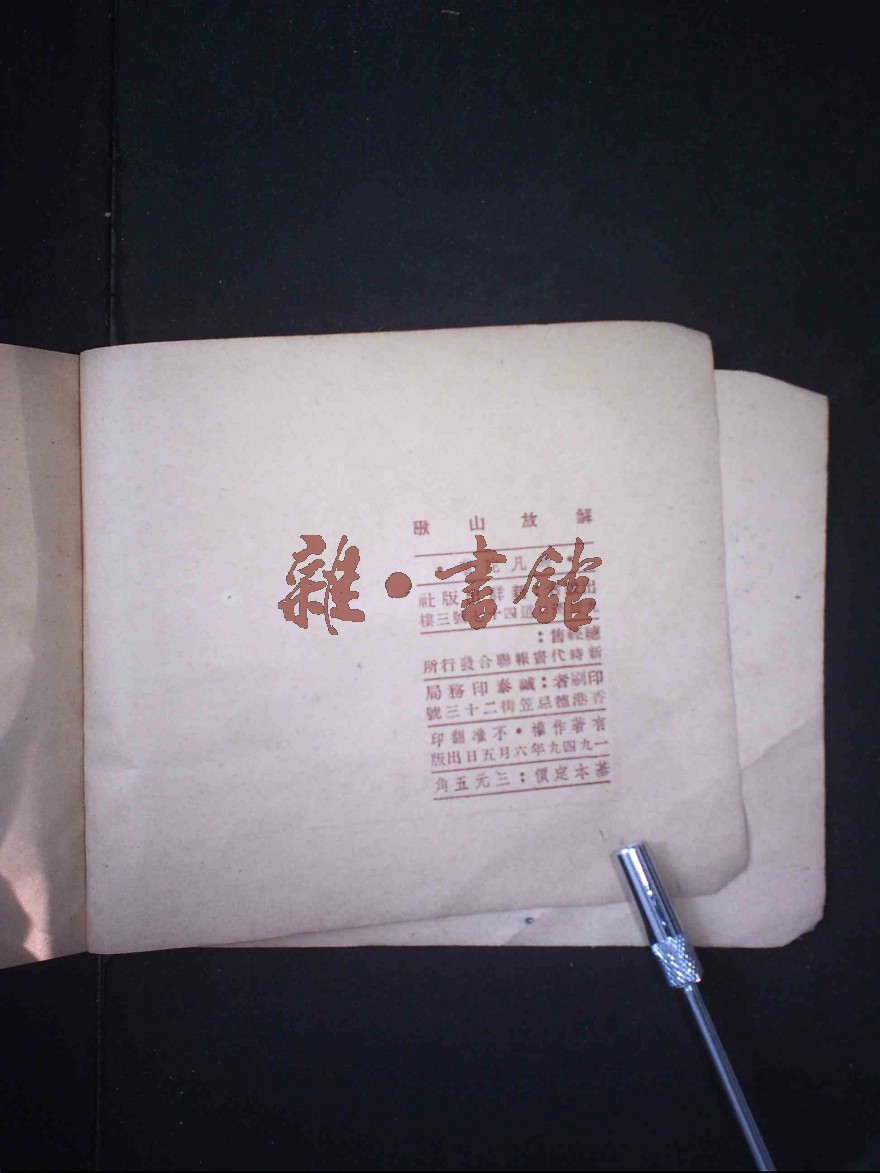 解放山歌
雜•書館
出版社
道四十號三樓
總經售：
新時代書報聯合發行所
印刷者：誠泰印務局
香港德忌笠街二十三號
有著作權•不准翻印
一九四九年六月五日出版
基本定價：三元五角